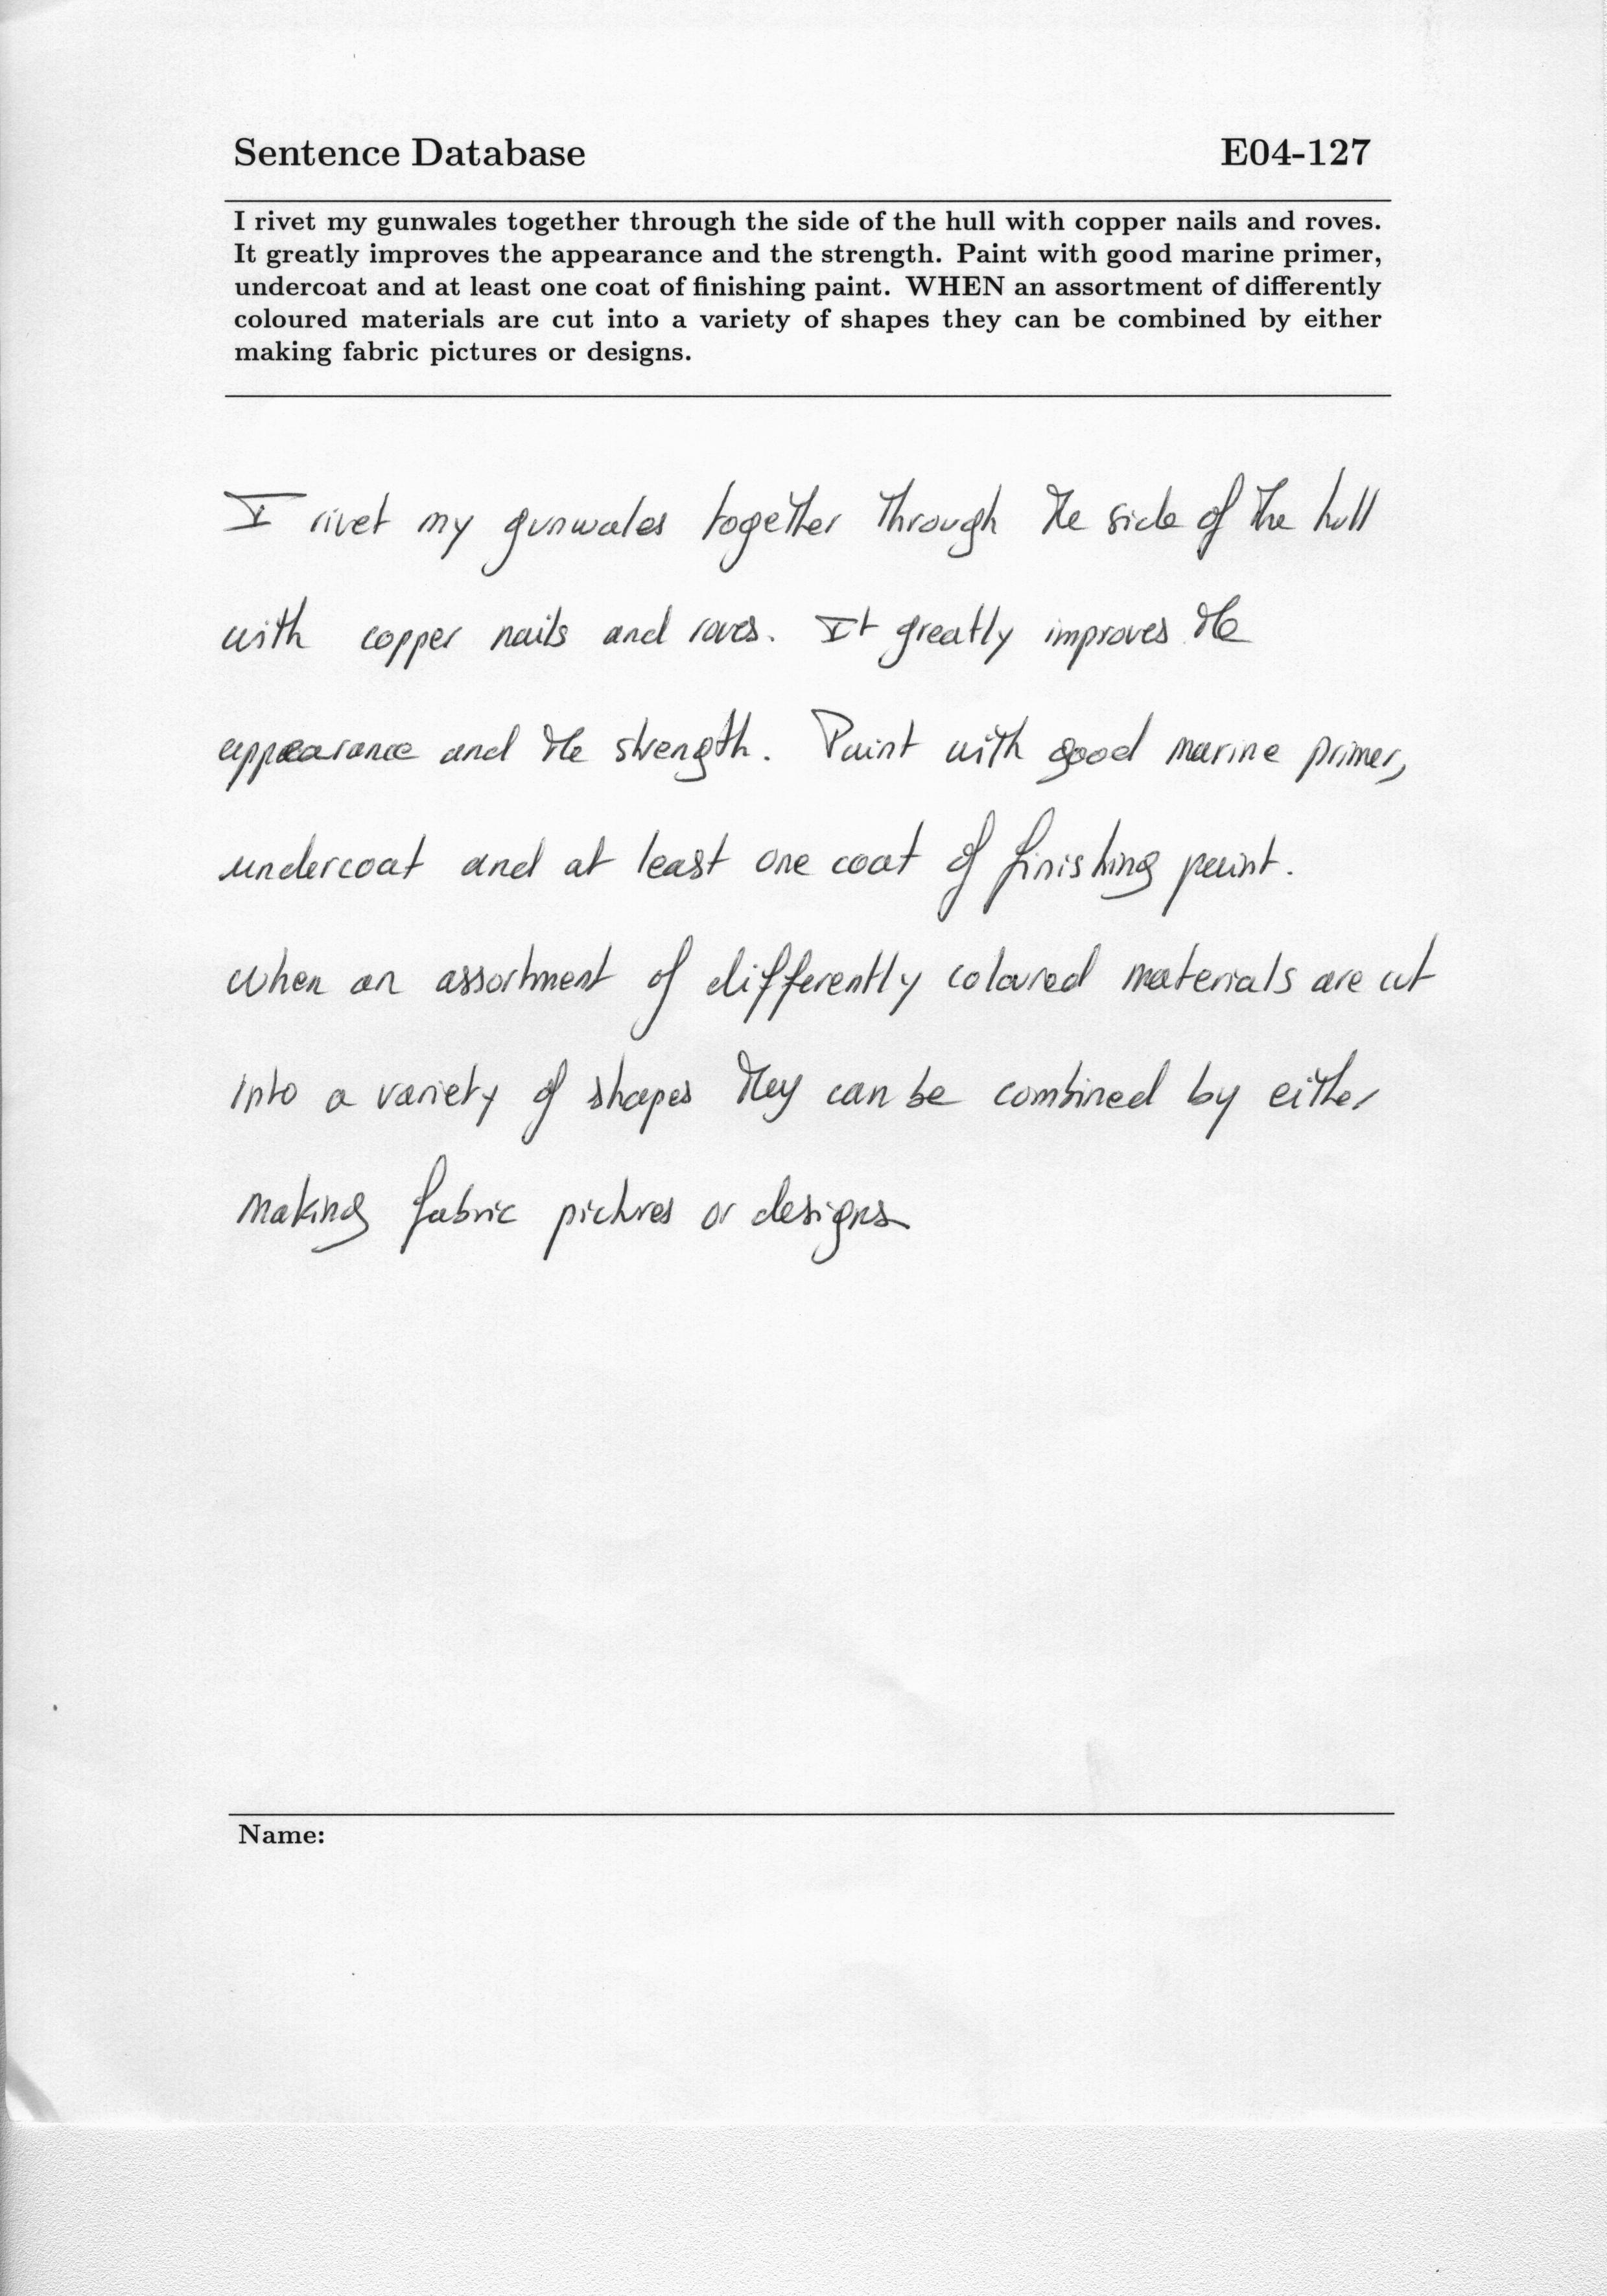 Sentence Database E04-127
I rivet my gunwales together through the side of the hull with copper nails and roves.
It greatly improves the appearance and the strength. Paint with good marine primer,
undercoat and at least one coat of finishing paint. WHEN an assortment of differently
coloured materials are cut into a variety of shapes they can be combined by either
making fabric pictures or designs.
I rivet my gunwales together through the side of the hull
with copper nails and roves. It greatly improves the
appearance and the strength. Paint with good marine primer,
undercoat and at least one coat of finishing paint.
When an assortment of differently coloured materials are cut
into a variety of shapes they can be combined by either
making fabric pictures or designs
Name: